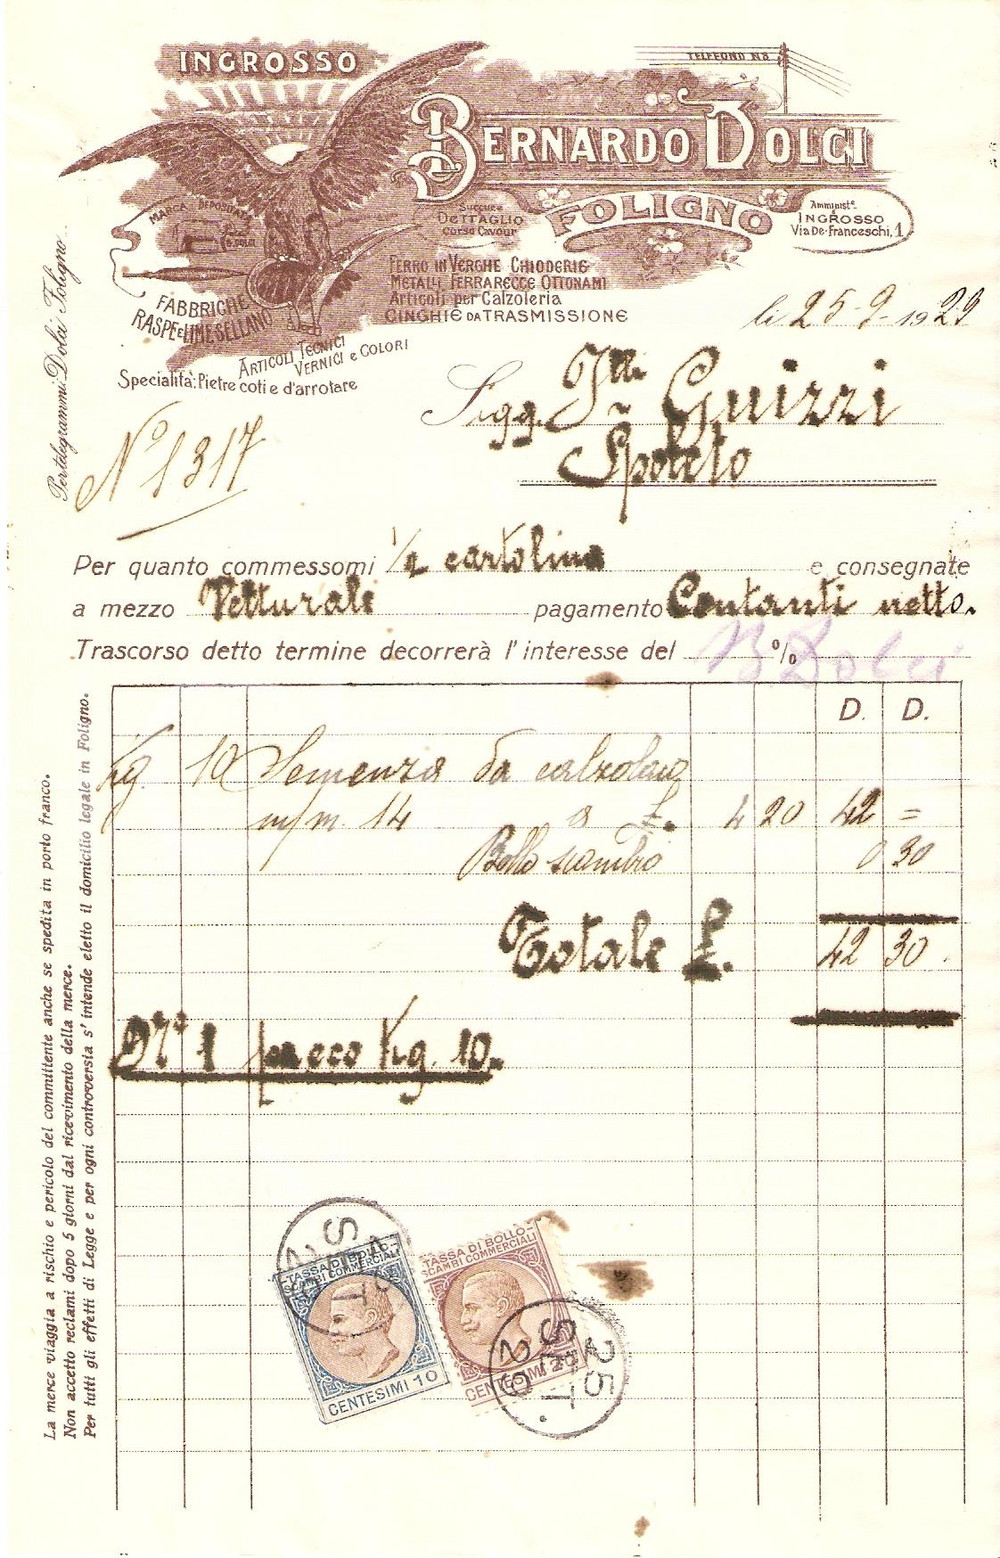 INGROSSO
TELEFONO N.8
BERNARDO DOLCI
FOLIGNO
Succur.e
DETTAGLIO
Corso Cavour
Amminist.e
INGROSSO
Via De-Franceschi, 1
MARCA DEPOSITATA
FERRO IN VERGHE CHIODERIE
METALLI, FERRARECCE OTTONAMI
ARTICOLI per Calzoleria
CINGHIE DA TRASMISSIONE
FABBRICHE
RASPE e LIME SELLANO
ARTICOLI TECNICI
VERNICI e COLORI
Specialità: Pietre coti e d'arrotare
Per telegrammi: Dolci Foligno
li 25-9-1929
Sigg. F.lli Guizzi
Spoleto
N° 1317
Per quanto commessomi ½ cartolina e consegnate
a mezzo Vetturale pagamento Contanti netto.
Trascorso detto termine decorrerà l'interesse del %
B. Dolci
D. D.
Kg. 10 Semenza da calzolaio
m/m. 14 a £. 4 20 42 =
Bollo scambio 0 30
Totale £. 42 30.
N° 1 pacco Kg. 10.
La merce viaggia a rischio e pericolo del committente anche se spedita in porto franco.
Non accetto reclami dopo 5 giorni dal ricevimento della merce.
Per tutti gli effetti di Legge e per ogni controversia s' intende eletto il domicilio legale in Foligno.
TASSA DI BOLLO-
SCAMBI COMMERCIALI
CENTESIMI 10
TASSA DI BOLLO-
SCAMBI COMMERCIALI
CENTESIMI 20
25
SET.
29